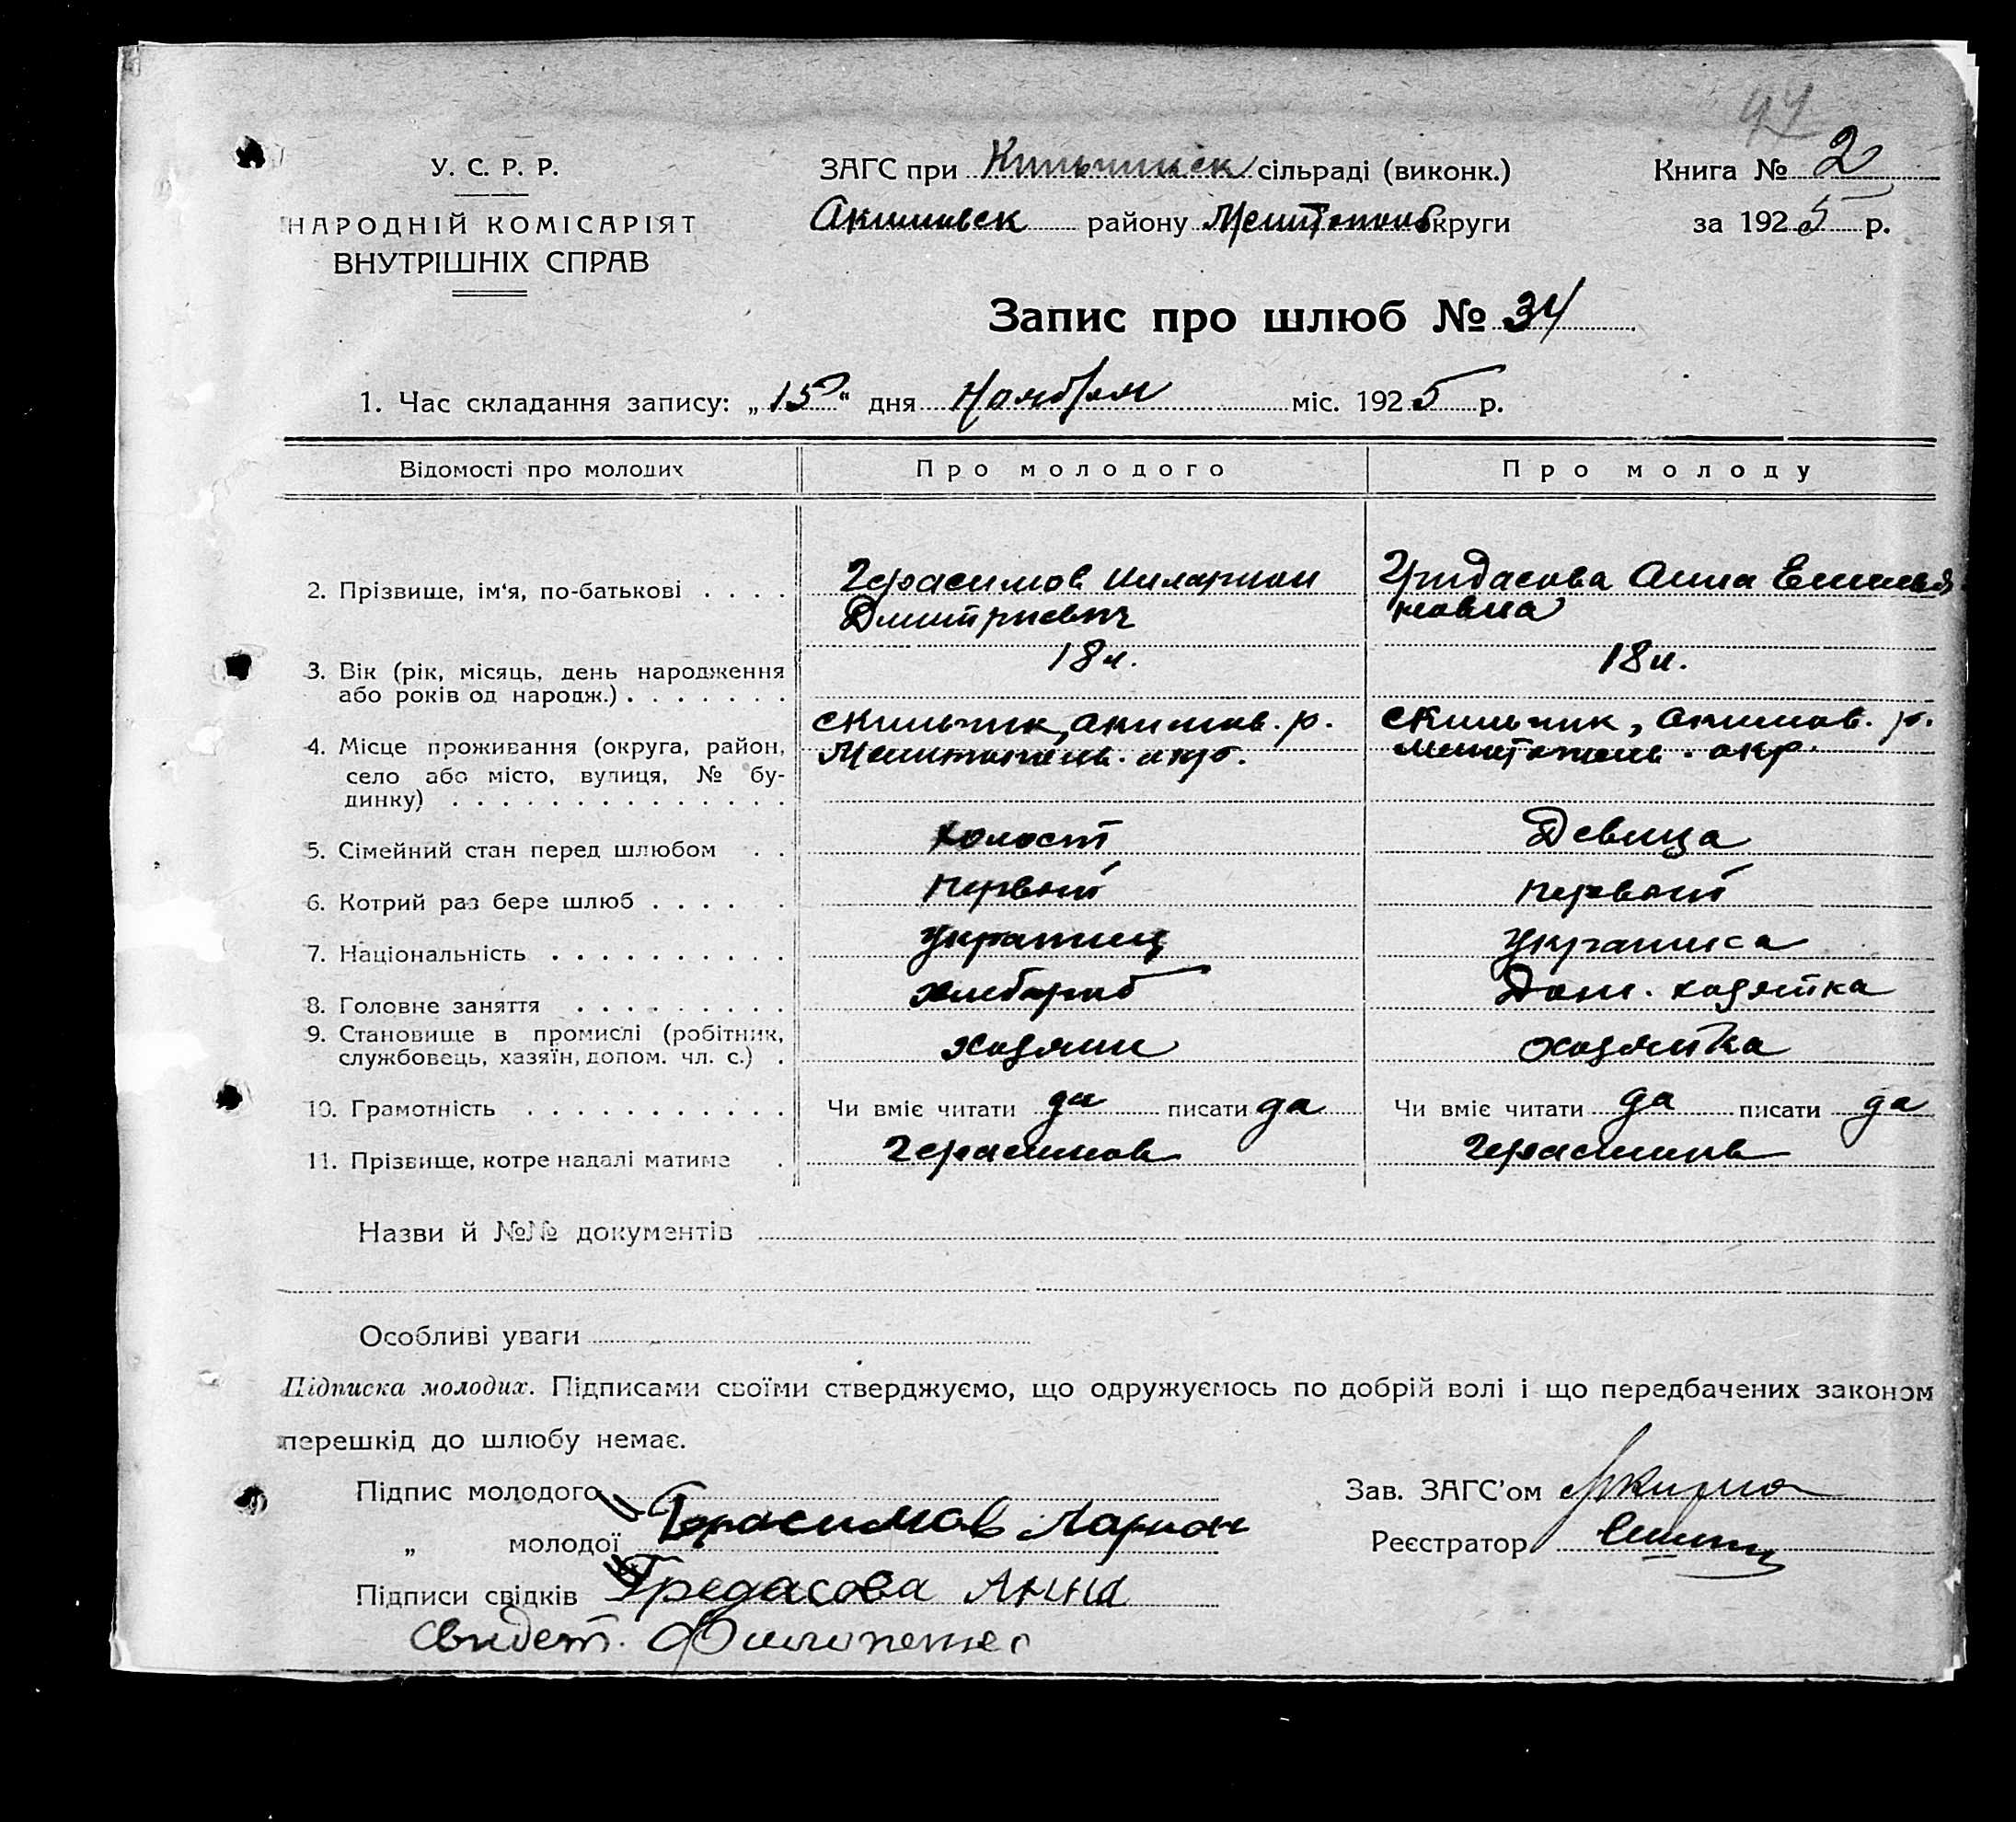 44
У. С. Р. Р.
НАРОДНІЙ КОМІСАРІЯТ
ВНУТРІШНІХ СПРАВ
ЗАГС при сільраді (виконк.)
Акимовск району Мелитополь округи
Книга № 2
за 1925 р.
Запис про шлюб № 34
1. Час складання запису: „15“ дня Ноября міс. 1925 р.
Відомості про молодих Про молодого Про молоду
2. Прізвище, ім'я, по-батькові . . . . Герасимов Иларион Гридасова Анна Емилья
Дмитриевич новна
3. Вік (рік, місяць, день народження 18 л. 18 л.
або років од народж.) . . . . . . .
4. Місце проживання (округа, район, с Кильчик, акимов. р. с Кильчик, акимов. р.
село або місто, вулиця, № бу- Мелитополь. окр. Мелитополь. окр.
динку) . . . . . . . . . . . . . .
5. Сімейний стан перед шлюбом . . холост Девица
6. Котрий раз бере шлюб . . . . . первый первый
7. Національність . . . . . . . . . . украинец украинка
8. Головне заняття . . . . . . . . . хлебороб Дом. хозяйка
9. Становище в промислі (робітник, хозяин хозяйка
службовець, хазяїн, допом. чл. с.) .
10. Грамотність . . . . . . . . . . . Чи вміє читати да писати да Чи вміє читати да писати да
11. Прізвище, котре надалі матиме . Герасимов Герасимов
Назви й №№ документів
Особливі уваги
Підписка молодих. Підписами своїми стверджуємо, що одружуємось по добрій волі і що передбачених законом
перешкід до шлюбу немає.
Підпис молодого
Зав. ЗАГС'ом
„ молодої Герасимов Ларион
Реєстратор
Підписи свідків Гредасова Анна
Свидет.